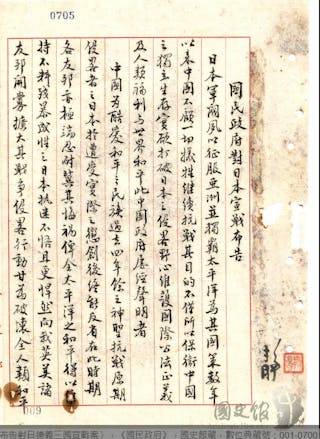 0705
國民政府對日本宣戰布告
日本軍閥夙以征服亞洲並獨霸太平洋為其國策數年
以來中國不顧一切犧牲繼續抗戰其目的不僅所以保衛中國
之獨立生存實欲打破日本之侵略野心維護國際公法正義
及人類福利與世界和平此中國政府屢經聲明者
中國為酷愛和平之民族過去四年餘之神聖抗戰原期
侵略者之日本於遭受實際之懲創後終能反省在此時期
各友邦亦極端忍耐冀其悔禍俾全太平洋之和平得以
持不料殘暴成性之日本執迷不悟且更悍然向我英美諸
友邦開釁擴大其戰爭侵略行動甘為破壞全人類和平
009
國史館
布告對日德義三國宣戰案」,《國民政府》,國史館藏,數位典藏號:001-0700